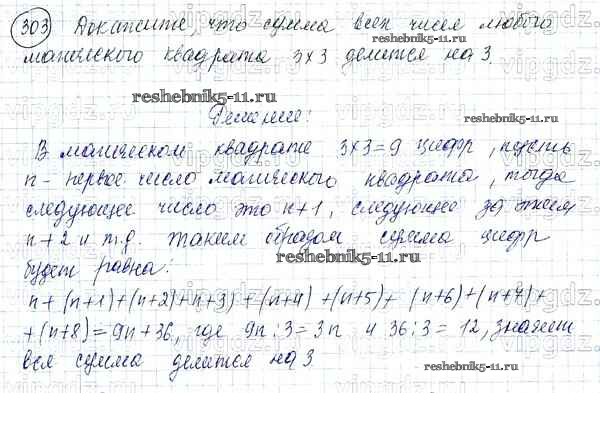 303 Докажите, что сумма всех чисел любого
магического квадрата 3х3 делится на 3.
reshebnik5-11.ru
reshebnik5-11.ru
Решение:
reshebnik5-11.ru
В магическом квадрате 3х3=9 цифр, пусть
n - первое число магического квадрата, тогда
следующее число это n+1, следующее за этим
n+2 и т.д. Таким образом сумма цифр
reshebnik5-11.ru
будет равна:
n+(n+1)+(n+2)+n+3)+(n+4)+(n+5)+(n+6)+(n+7)+
+(n+8)=9n+36, где 9n:3=3n и 36:3=12, значит
вся сумма делится на 3
reshebnik5-11.ru